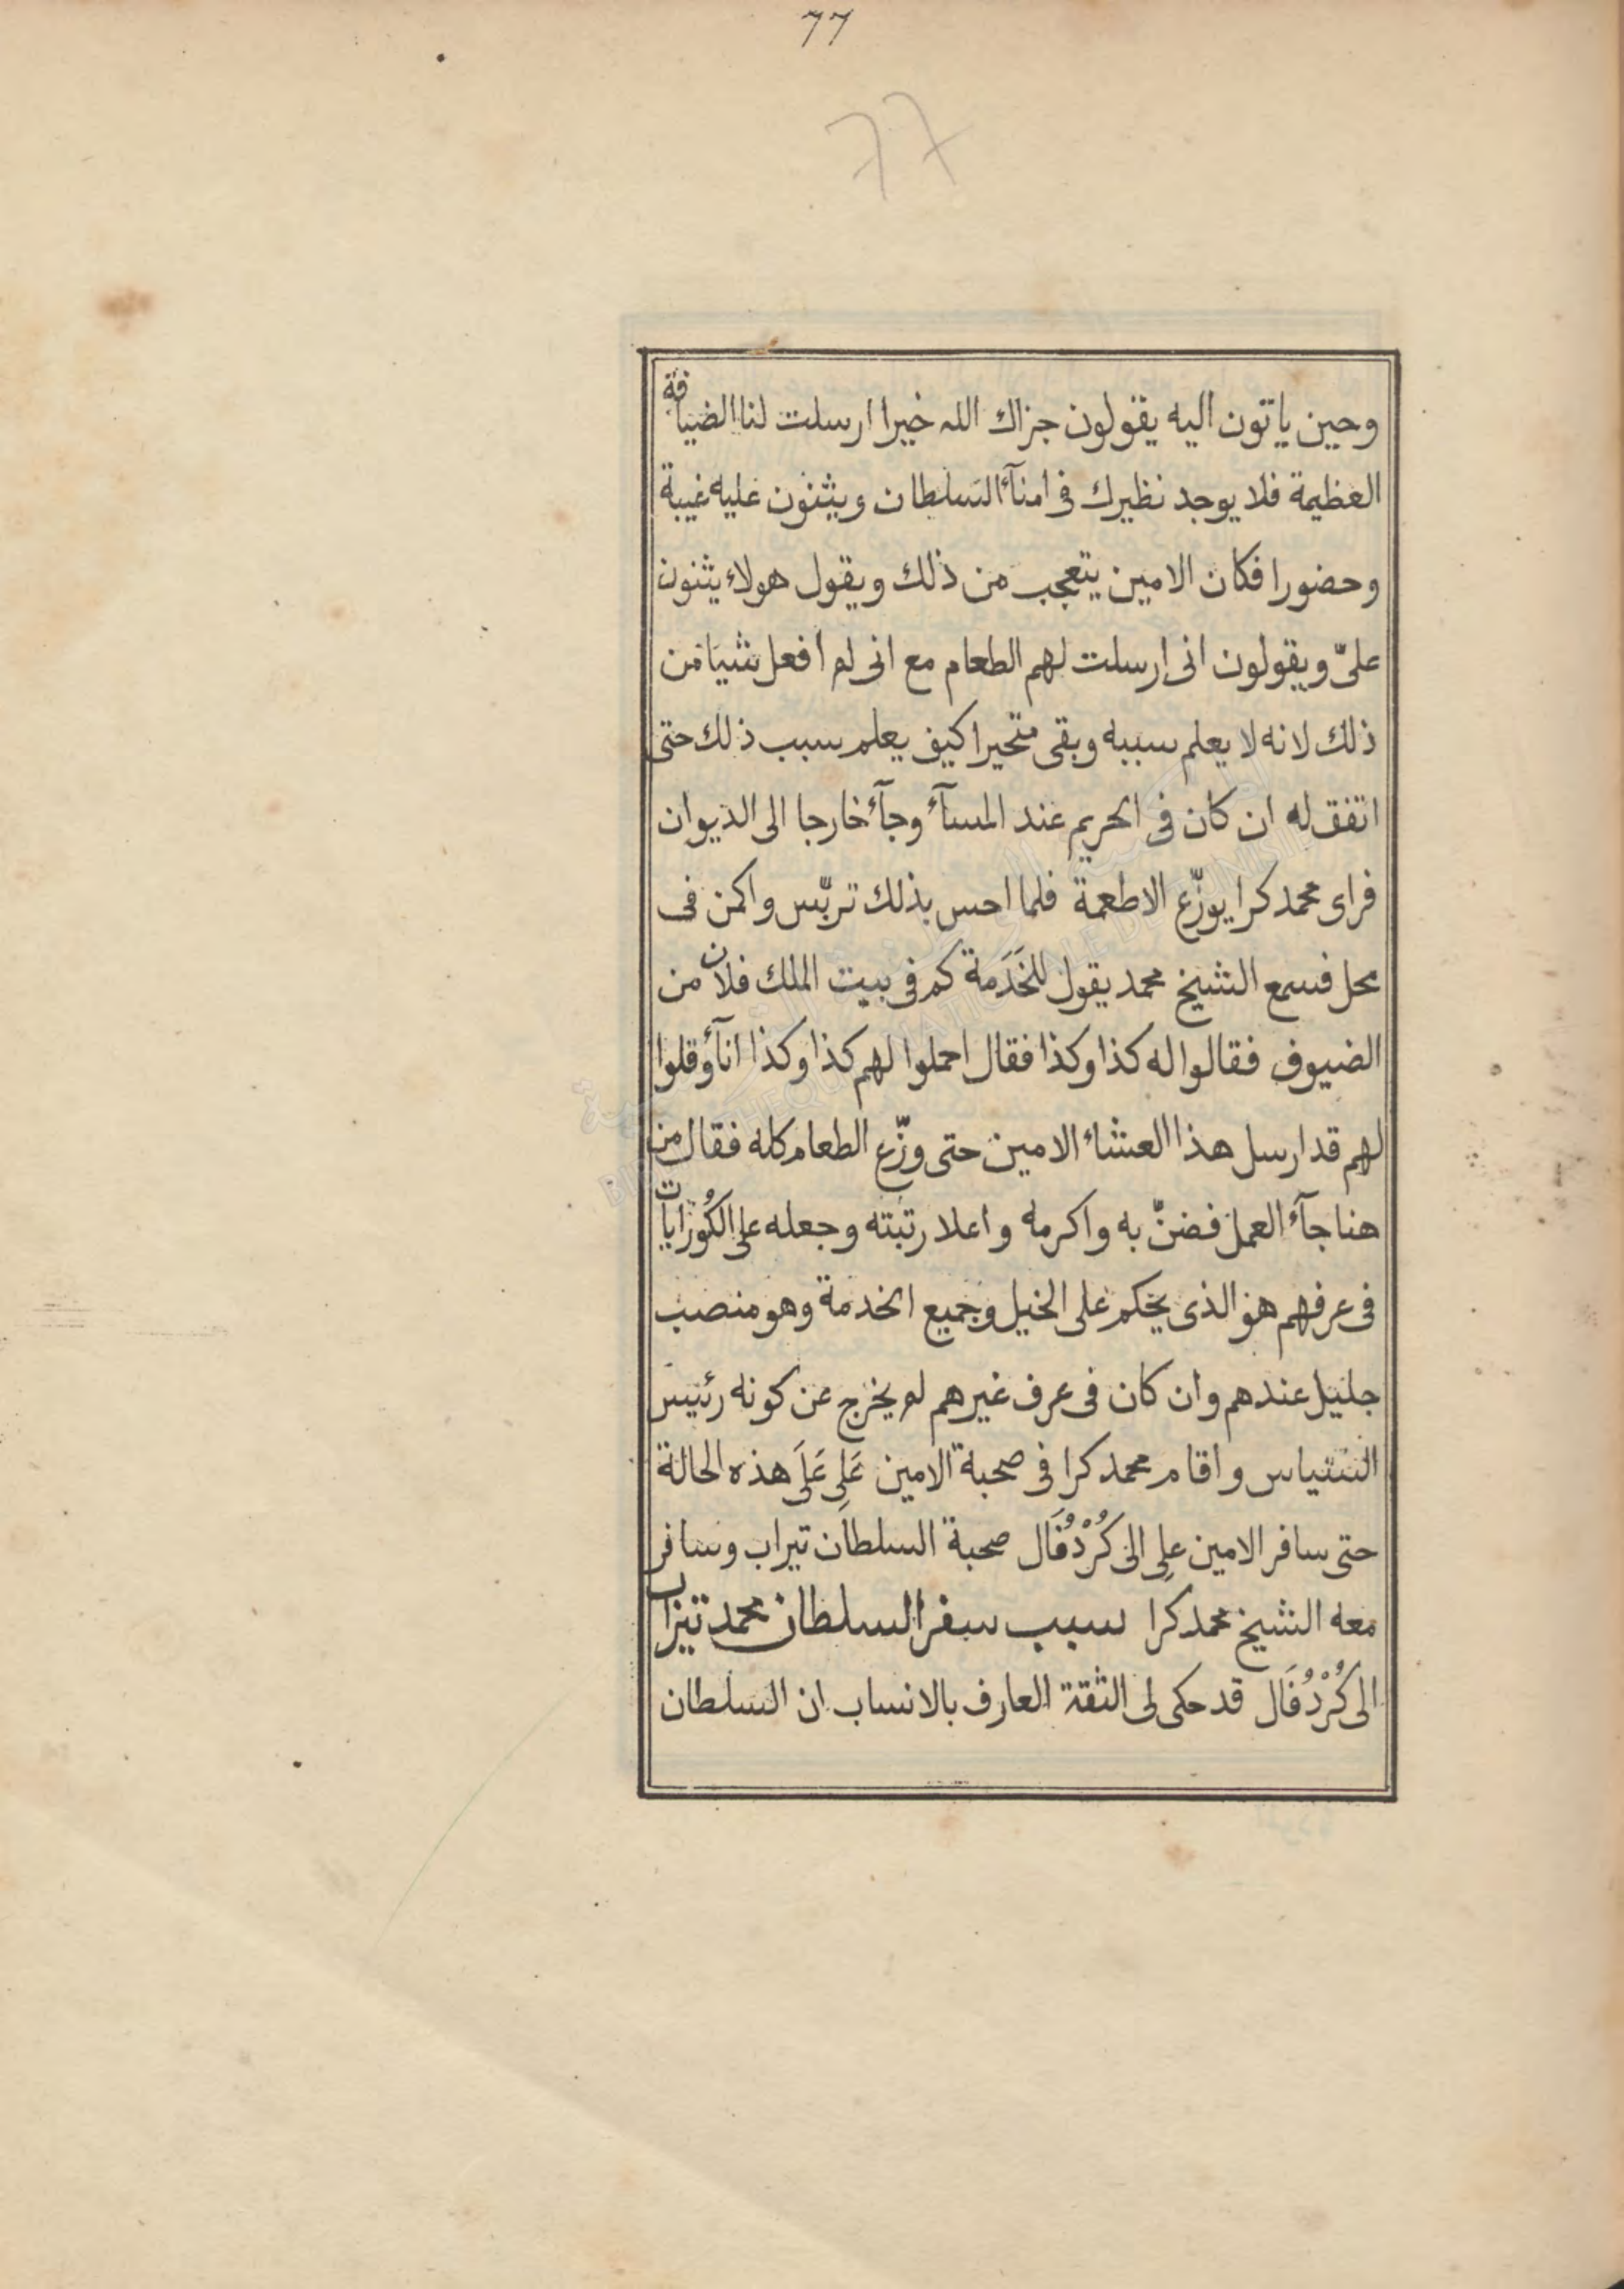 77
77
وحين ياتون اليه يقولون جزاك الله خيرا ارسلت لنا الضيافة
العظيمة فلا يوجد نظيرك فى امنآء السلطان ويثنون عليه غيبة
وحضورا فكان الامين يتعجب من ذلك ويقول هولاء يثنون
علىّ ويقولون انى ارسلت لهم الطعام مع انى لم أفعل شيا من
ذلك لانه لا يعلم سببه وبقى متحيرا كيف يعلم سبب ذلك حتى
اتفق له ان كان فى الحريم عند المسآء وجآء خارجا الى الديوان
فراى محمد كرا يوزّع الاطعمة فلما احس بذلك تربّس واكمن فى
محل فسمع الشيخ محمد يقول للخَدَمة كم فى بيت الملك فلان من
الضيوف فقالوا له كذا وكذا فقال احملوا لهم كذا وكذا انآء وقلوا
لهم قد ارسل هذا العشاء الامين حتى وزّع الطعام كله فقال من
هنا جآء العمل فضنّ به واكرمه واعلا رتبته وجعله على الكُورَايات
فى عرفهم هو الذى يحكم على الخيل وجميع الخدمة وهو منصب
جليل عندهم وان كان فى عرف غيرهم لم يخرج عن كونه رئيس
السّتياس واقام محمد كرا فى صحبة الامين عَلِى عَلَى هذه الحالة
حتى سافر الامين علِى الى كُرْدُفَال صحبة السلطان تيراب وسافر
معه الشيخ محمد كرا سبب سفر السلطان محمد تيراب
الى كُرْدُفَال قد حكى لى الثقة العارف بالانساب ان السلطان